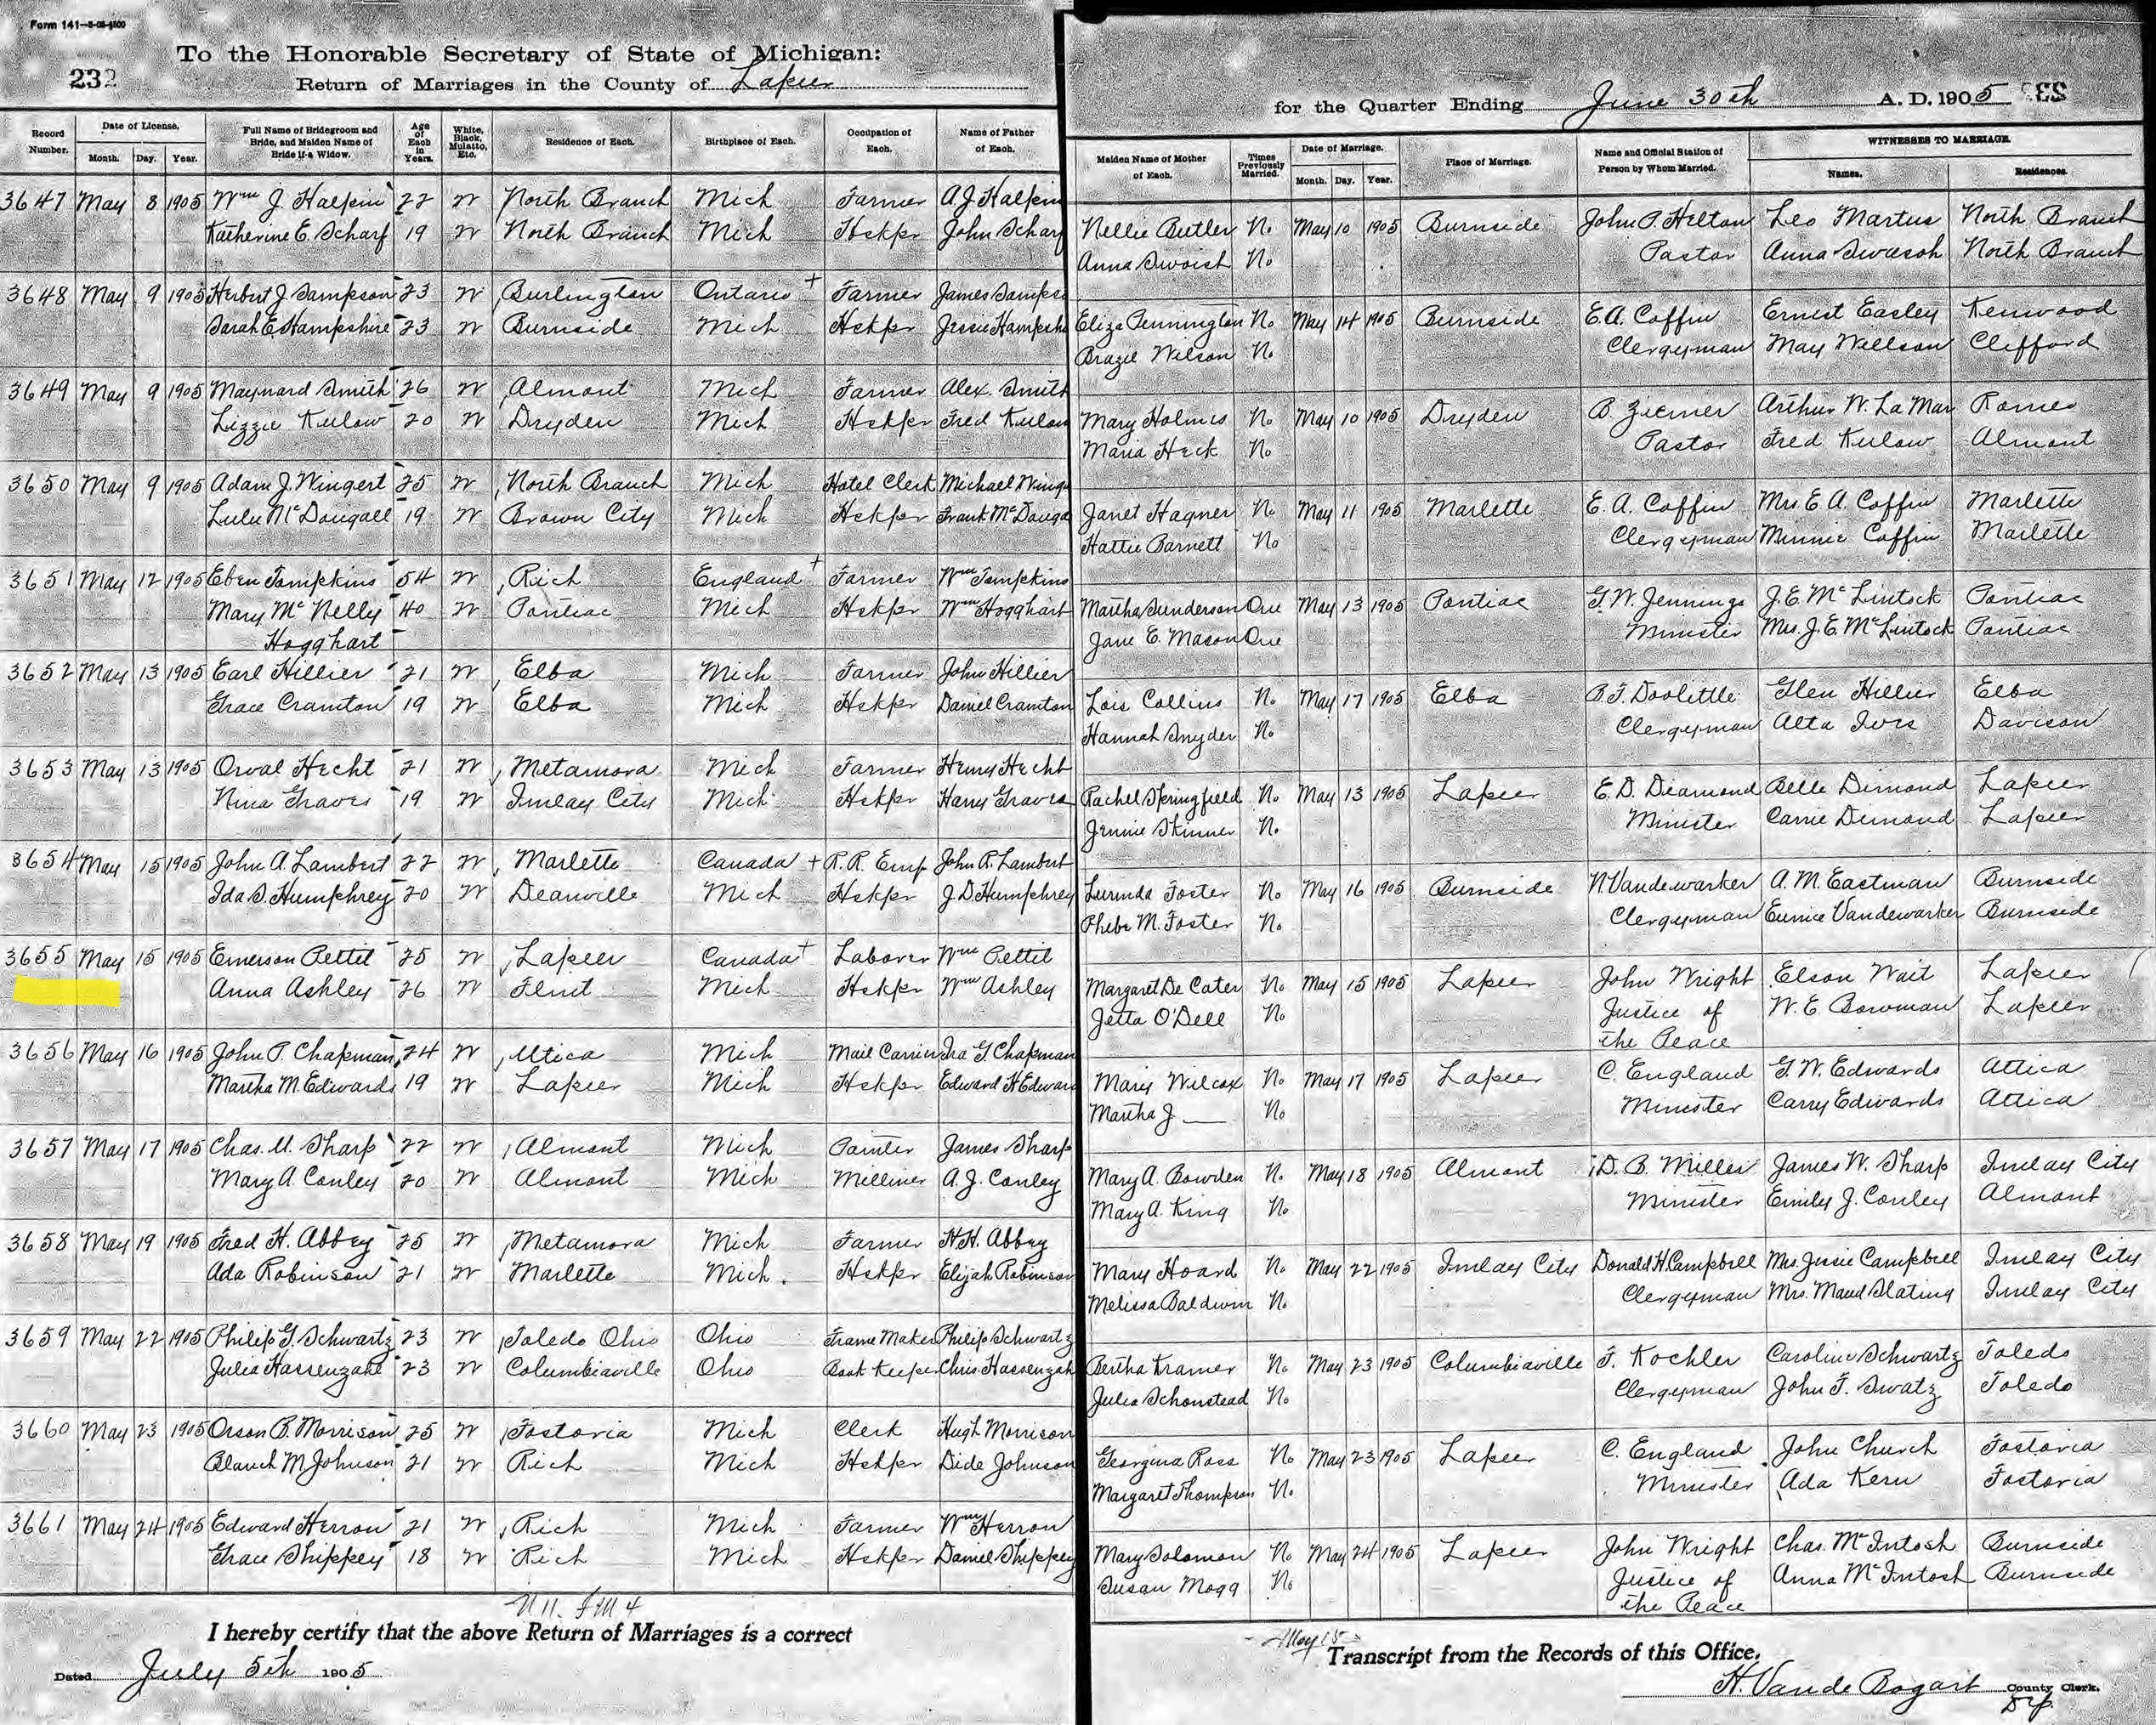 Form 141—5-03-4500
To the Honorable Secretary of State of Michigan:
232
Return of Marriages in the County of Lapeer
for the Quarter Ending June 30th A. D. 1905 232
Record Number. Date of License. Month. Day. Year. Full Name of Bridegroom and Bride, and Maiden Name of Bride if a Widow. Age of Each in Years. White, Black, Mulatto, Etc. Residence of Each. Birthplace of Each. Occupation of Each. Name of Father of Each. Maiden Name of Mother of Each. Times Previously Married. Date of Marriage. Month. Day. Year. Place of Marriage. Name and Official Station of Person by Whom Married. WITNESSES TO MARRIAGE. Names. Residences.
3647 May 8 1905 Wm J. Halpin 22 W North Branch Mich Farmer A. J. Halpin Nellie Butler No May 10 1905 Burnside John P. Hilton Leo Martus North Branch
Katherine E. Scharf 19 W North Branch Mich Hskpr John Scharf Anna Swoish No Pastor Anna Swasoh North Branch
3648 May 9 1905 Herbert J. Sampson 23 W Burlington Ontario + Farmer James Samps Eliza Pennington No May 14 1905 Burnside E. A. Coffin Ernest Easley Kenwood
Sarah E. Hampshire 23 W Burnside Mich Hskpr Jessie Hampsh Brazil Wilson No Clergyman May Willson Clifford
3649 May 9 1905 Maynard Smith 26 W Almont Mich Farmer Alex. Smith Mary Holmes No May 10 1905 Dryden B. Ziemer Arthur W. La Mar Romeo
Lizzie Kulow 20 W Dryden Mich Hskpr Fred Kulow Maria Heck No Pastor Fred Kulow Almont
3650 May 9 1905 Adam J. Wingert 25 W North Branch Mich Hotel Clerk Michael Wing Janet Hagner No May 11 1905 Marlette E. A. Coffin Mrs E. A. Coffin Marlette
Lulu McDougall 19 W Brown City Mich Hskpr Frank McDouga Hattie Barnett No Clergyman Minnie Coffin Marlette
3651 May 12 1905 Eben Tompkins 54 W Rich England + Farmer Wm Tompkins Martha Sunderson One May 13 1905 Pontiac G. W. Jennings J. E. McLintock Pontiac
Mary McNelly 40 W Pontiac Mich Hskpr Wm Hogghart Jane E. Mason One Minister Mrs. J. E. McLintock Pontiac
Hogghart
3652 May 13 1905 Earl Hillier 21 W Elba Mich Farmer John Hillier Lois Collins No May 17 1905 Elba B. F. Doolittle Glen Hillier Elba
Grace Cramton 19 W Elba Mich Hskpr Daniel Cramton Hannah Snyder No Clergyman Alta Ivers Davison
3653 May 13 1905 Orval Hecht 21 W Metamora Mich Farmer Henry Hecht Rachel Springfield No May 13 1905 Lapeer E. D. Diamond Belle Dimond Lapeer
Nina Graves 19 W Imlay City Mich Hskpr Harry Graves Jennie Skinner No Minister Carrie Demond Lapeer
3654 May 15 1905 John A. Lambert 22 W Marlette Canada + R. R. Emp John R. Lambert Lurinda Foster No May 16 1905 Burnside N Vandewarker A. M. Eastman Burnside
Ida S. Humphrey 20 W Deanville Mich Hskpr J. D. Humphrey Phebe M. Foster No Clergyman Eunice Vandewarker Burnside
3655 May 15 1905 Emerson Pettit 25 W Lapeer Canada + Laborer Wm Pettit Margaret De Cater No May 15 1905 Lapeer John Wright Elson Wait Lapeer
Anna Ashley 26 W Flint Mich Hskpr Wm Ashley Jetta O'Dell No Justice of W. E. Bowman Lapeer
the Peace
3656 May 16 1905 John P. Chapman 24 W Utica Mich Mail Carrier Ira G Chapman Mary Wilcox No May 17 1905 Lapeer C. England G. W. Edwards Attica
Martha M. Edwards 19 W Lapeer Mich Hskpr Edward H Edwar Martha J — No Minister Carry Edwards Attica
3657 May 17 1905 Chas. U. Sharp 22 W Almont Mich Painter James Sharp Mary A. Bowden No May 18 1905 Almont D. B. Miller James W. Sharp Imlay City
Mary A. Conley 20 W Almont Mich Milliner A. J. Conley Mary A. King No Minister Emily J. Conley Almont
3658 May 19 1905 Fred H. Abbey 25 W Metamora Mich Farmer H. H. Abbey Mary Hoard No May 22 1905 Imlay City Donald H. Campbell Mrs. Jessie Campbell Imlay City
Ada Robinson 21 W Marlette Mich. Hskpr Elijah Robinson Melissa Baldwin No Clergyman Mrs. Maud Slating Imlay City
3659 May 22 1905 Philip G. Schwartz 23 W Toledo Ohio Ohio Frame Maker Philip Schwartz Bertha Kramer No May 23 1905 Columbiaville F. Kochler Caroline Schwartz Toledo
Julia Hassenzahl 23 W Columbiaville Ohio Book Keeper Chris Hassenzah Julia Schonstead No Clergyman John F. Swatz Toledo
3660 May 23 1905 Orson B. Morrison 25 W Fostoria Mich Clerk Hugh Morrison Georgina Ross No May 23 1905 Lapeer C. England John Church Fostoria
Blanch M Johnson 21 W Rich Mich Hskpr Dide Johnson Margaret Thompson No Minister Ada Kern Fostoria
3661 May 24 1905 Edward Herron 21 W Rich Mich Farmer Wm Herron Mary Solomon No May 24 1905 Lapeer John Wright Chas. McIntosh Burnside
Grace Shippey 18 W Rich Mich Hskpr Daniel Shippey Susan Mogg No Justice of Anna McIntosh Burnside
the Peace
I hereby certify that the above Return of Marriages is a correct Transcript from the Records of this Office.
Dated July 5th 1905
H. Vande Bogart County Clerk.
Dp.